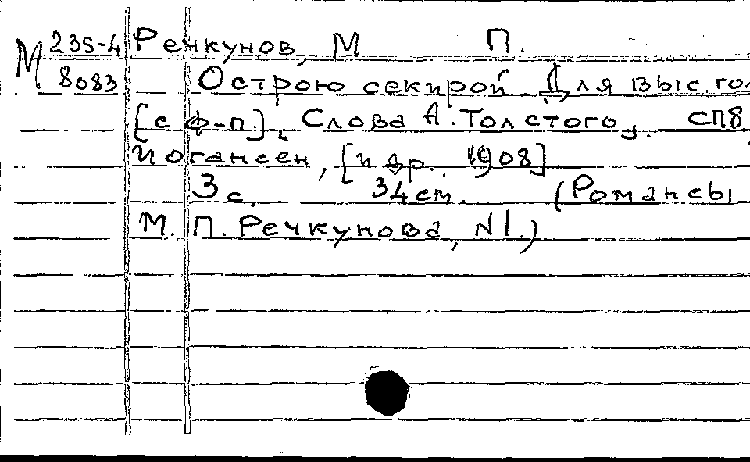 М 235-4 Речкунов, М П.
8083 Острою секирой. Для выс. гол
[с ф-п]. Слова А. Толстого. СПб,
Иогансен, [и др. 1908]
3 с. 34 см. (Романсы
М. П. Речкунова, N1.)